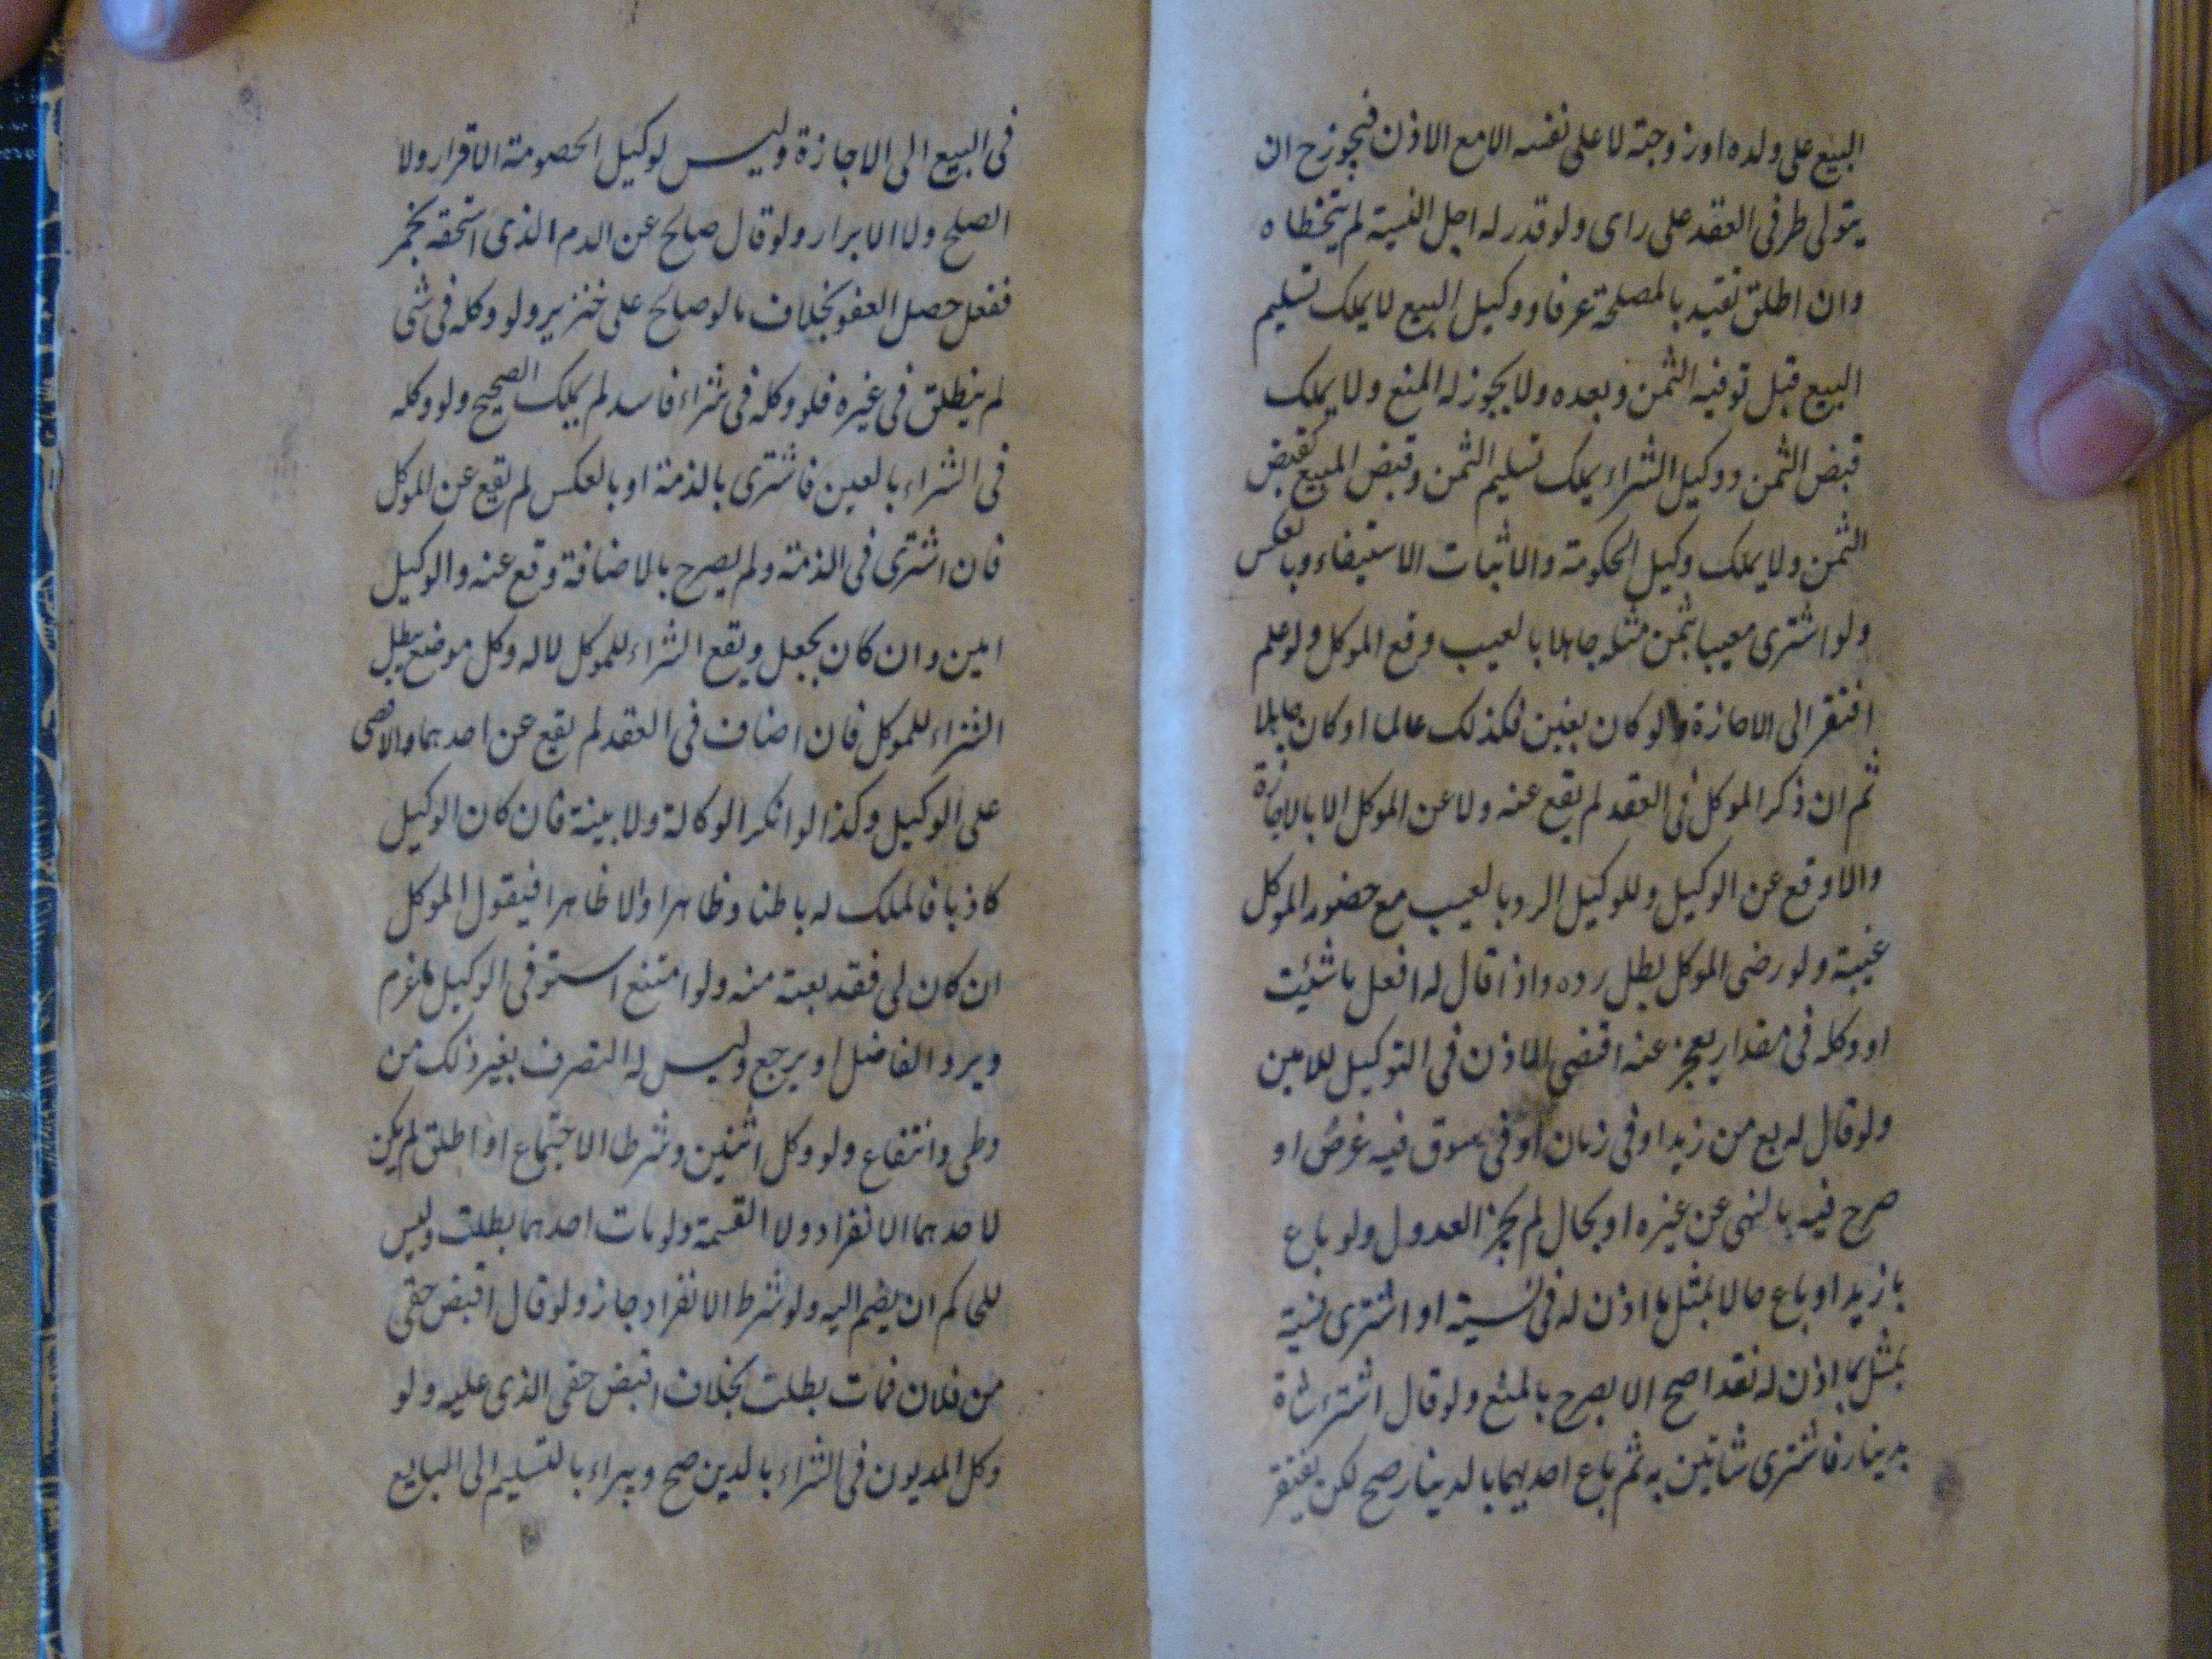 البيع على ولده او زوجته لا على نفسه الا مع الاذن فيجوز ح ان
يتولى طرفى العقد على راى ولو قدر له اجل النسية لم يتخطاه
وان اطلق تقيد بالمصلحة عرفا ووكيل البيع لا يملك تسليم
البيع قبل توفيه الثمن وبعده ولا يجوز له المنع ولا يملك
قبض الثمن ووكيل الشراء يملك تسليم الثمن وقبض المبيع كقبض
الثمن ولا يملك وكيل الحكومة والاثبات الاستيفاء وبالعكس
ولو اشترى معيبا بثمن مثله جاهلا بالعيب وقع الموكل ولو علم
افتقر الى الاجازة ولو كان بغبن فكذلك عالما او كان جاهلا
ثم ان ذكر الموكل فى العقد لم يقع عنه ولا عن الموكل الا بالاجازة
والا وقع عن الوكيل وللوكيل الرد بالعيب مع حضور الموكل
غيبة ولو رضى الموكل بطل رده واذا قال له افعل ما شئيت
او وكله فى مقدار يعجز عنه اقتضى الاذن فى التوكيل للامين
ولو قال له بع من زيد او فى زمان او فى سوق فيه غرض او
صرح فيه بالنهى عن غيره او بحال لم يجز العدول ولو باع
بازيد او باع حالا بمثل ما اذن له فى نسيته او اشترى نسية
بمثل ما اذن له نقدا صح الا يصرح بالمنع ولو قال اشتر شاة
بدينار فاشترى شاتين به ثم باع احديهما بالدينار صح لكن يفتقر
فى البيع الى الاجازة وليس لوكيل الخصومة الاقرار ولا
الصلح ولا الابرار ولو قال صالح عن الدم الذى استحقه بخمر
ففعل حصل العفو بخلاف ما لو صالح على خنزير ولو وكله فى شى
لم ينطلق فى غيره فلو وكله فى شراء فاسد لم يملك الصحيح ولو وكله
فى الشراء بالعين فاشترى بالذمة او بالعكس لم يقع عن الموكل
فان اشترى فى الذمة ولم يصرح بالاضافة وقع عنه والوكيل
امين وان كان بجعل ويقع الشراء للموكل لا له وكل موضع يبطل
الشراء للموكل فان اضاف فى العقد لم يقع عن احدهما والا قضى
على الوكيل وكذا لو انكر الوكالة ولا بينة فان كان الوكيل
كاذبا فالملك له باطنا وظاهرا والا ظاهرا فيقول الموكل
ان كان لى فقد بعته منه ولو امتنع استوفى الوكيل ما غرم
ويرد الفاضل او يرجع وليس له التصرف بغير ذلك من
وطى وانتفاع ولو وكل اثنين وشرط الاجتماع او اطلق لم يكن
لاحدهما الانفراد ولا القسمة ولو مات احدهما بطلت وليس
للحاكم ان يضم اليه ولو شرط الانفراد جاز ولو قال اقبض حقى
من فلان فمات بطلت بخلاف اقبض حقى الذى عليه ولو
وكل المديون فى الشراء بالدين صح ويبراء بالتسليم الى البايع